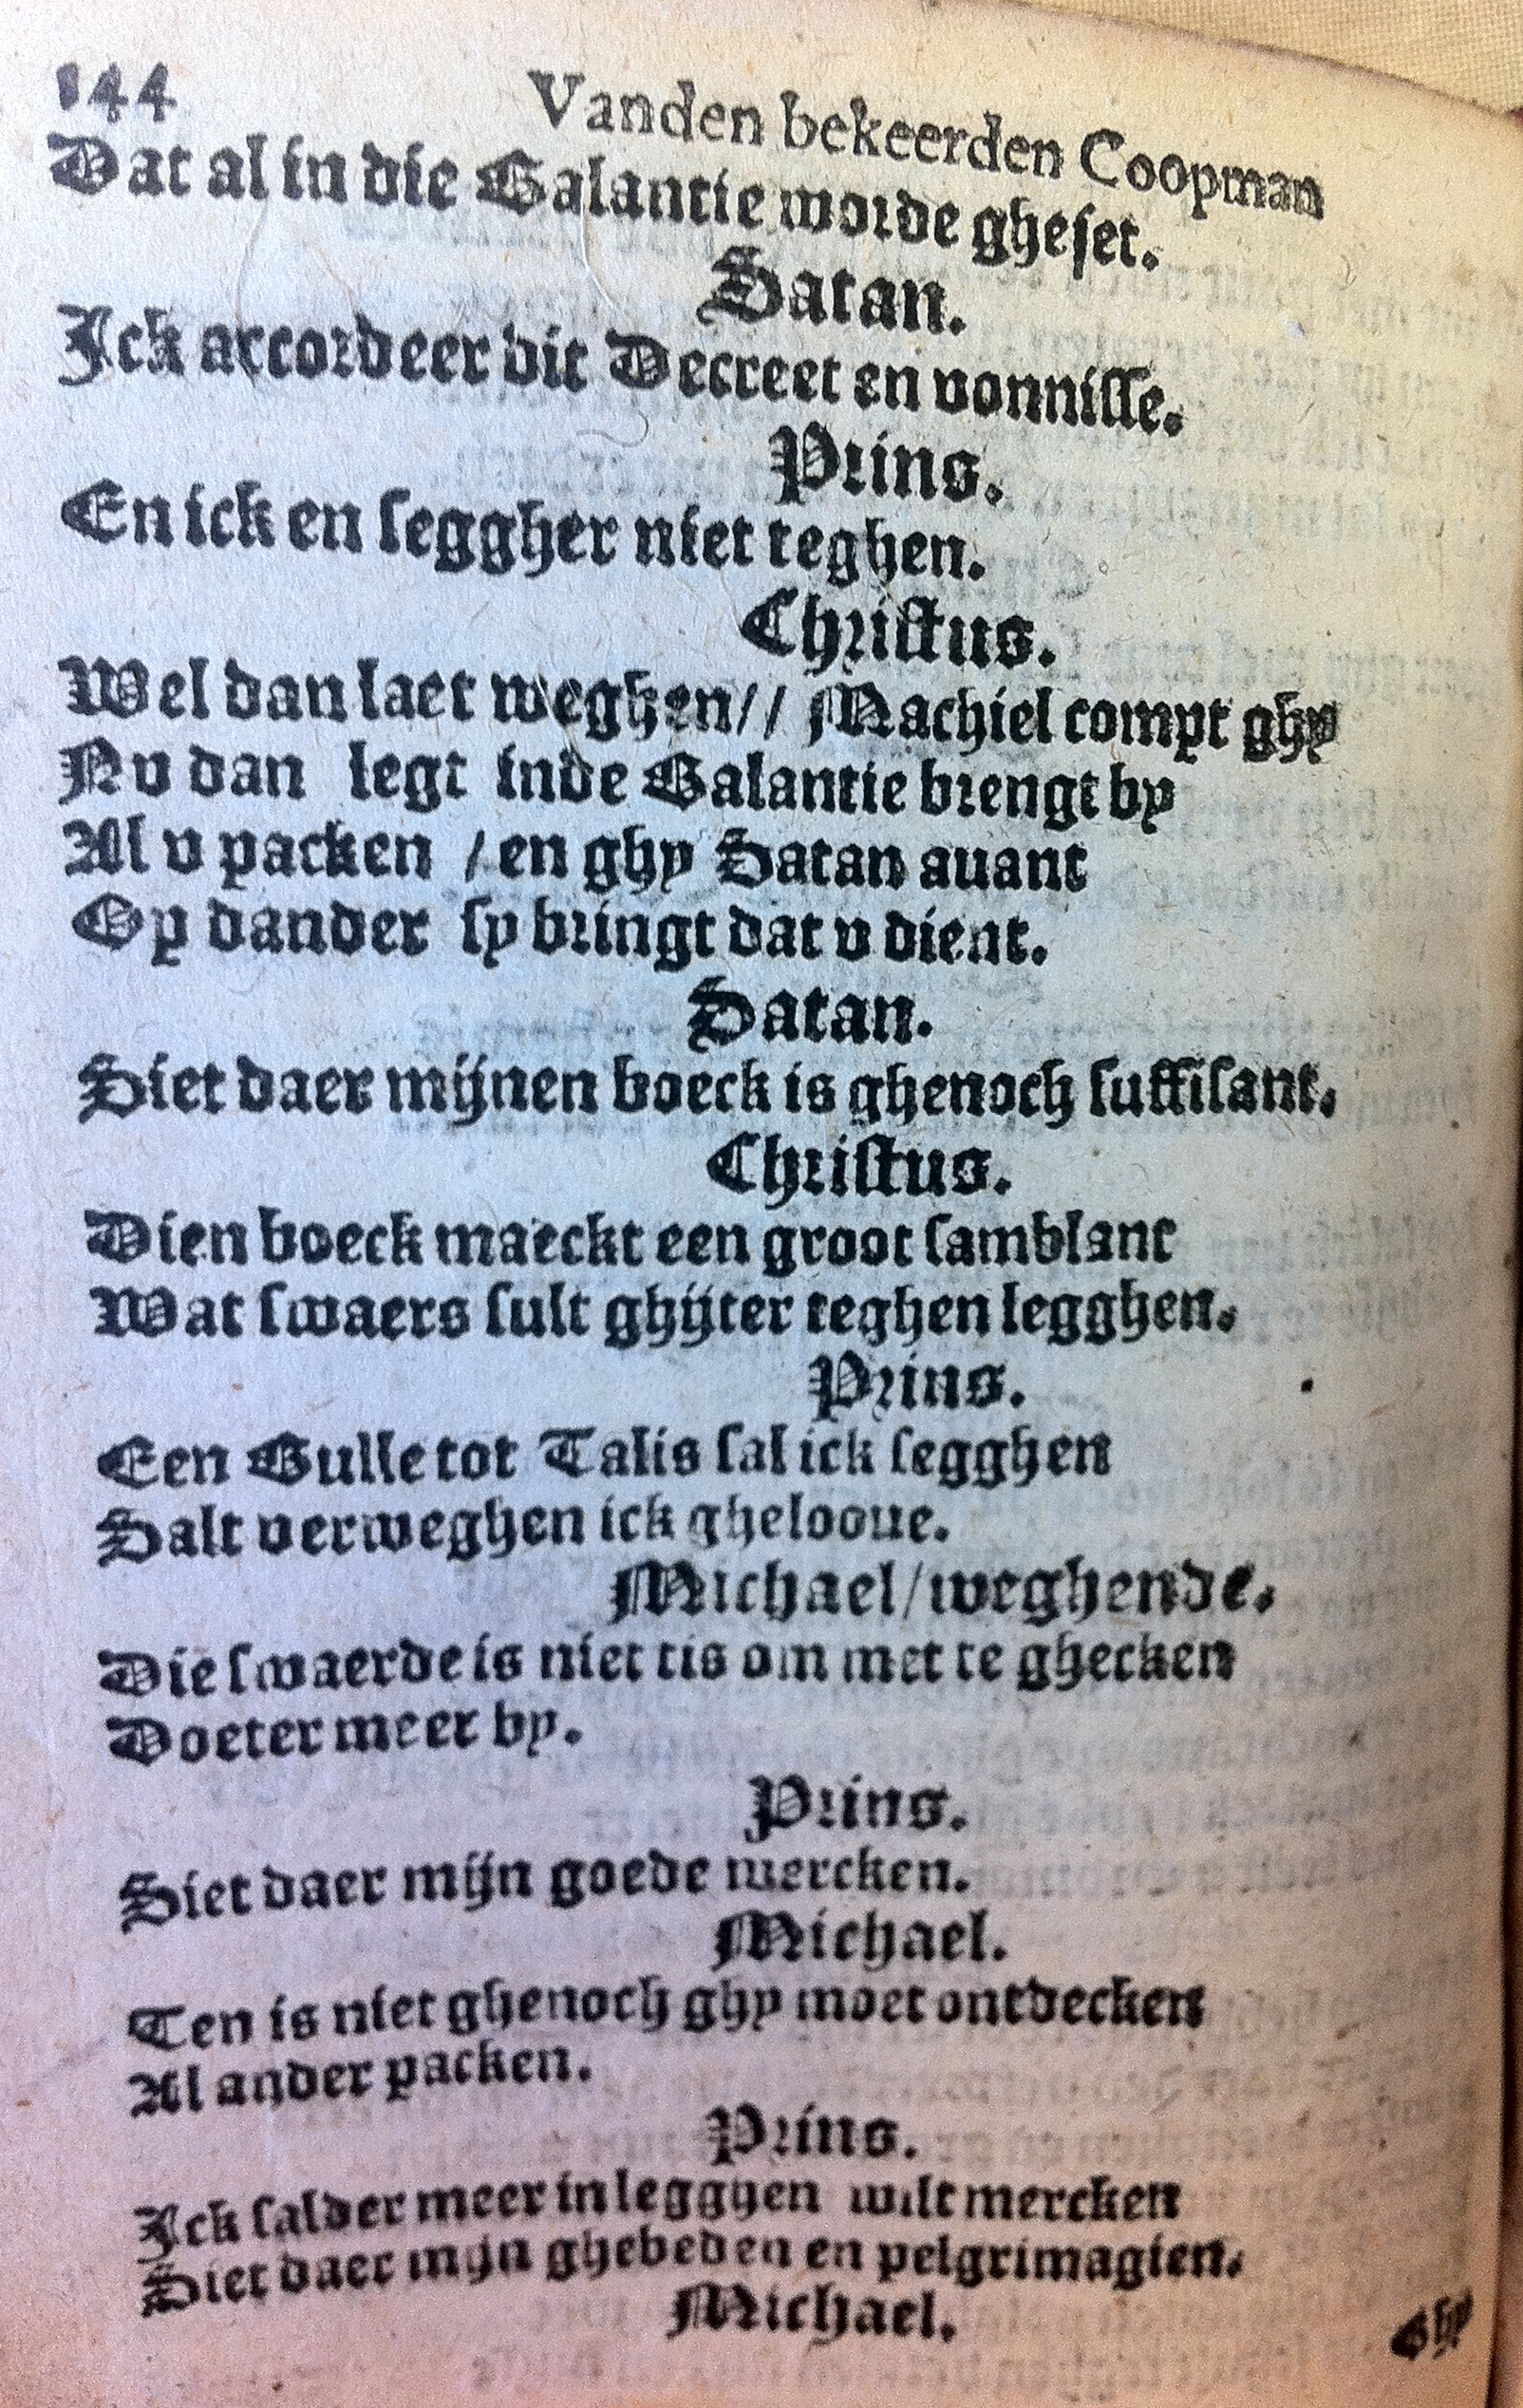 144
Vanden bekeerden Coopman
Dat al in die Balantie worde gheset.
Satan.
Ick accordeer dit Decreet en vonnisse.
Prins.
En ick en seggher niet teghen.
Christus.
Wel dan laet weghen// Machiel compt ghy
Nv dan legt inde Balantie brengt by
Al v packen / en ghy Satan auant
Op dander sy bringt dat v dient.
Satan.
Siet daer mijnen boeck is ghenoch suffisant.
Christus.
Dien boeck maeckt een groot samblant
Wat swaers sult ghijter teghen legghen.
Prins.
Een Bulle tot Talis sal ick segghen
Salt verweghen ick ghelooue.
Michael/weghende.
Die swaerde is niet tis om met te ghecken
Doeter meer by.
Prins.
Siet daer mijn goede wercken.
Michael.
Ten is niet ghenoch ghy moet ontdecken
Al ander packen.
Prins.
Ick salder meer in legghen wilt mercken
Siet daer mijn ghebeden en pelgrimagien.
Michael.
Ghy